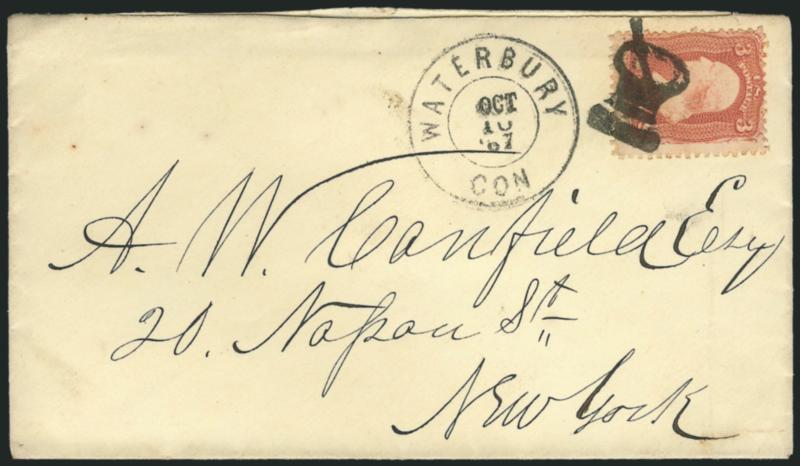 WATERBURY
OCT
10
'67
CON
3 U.S. POSTAGE 3
A. W. Canfield Esq
20. Nassau St.
New York